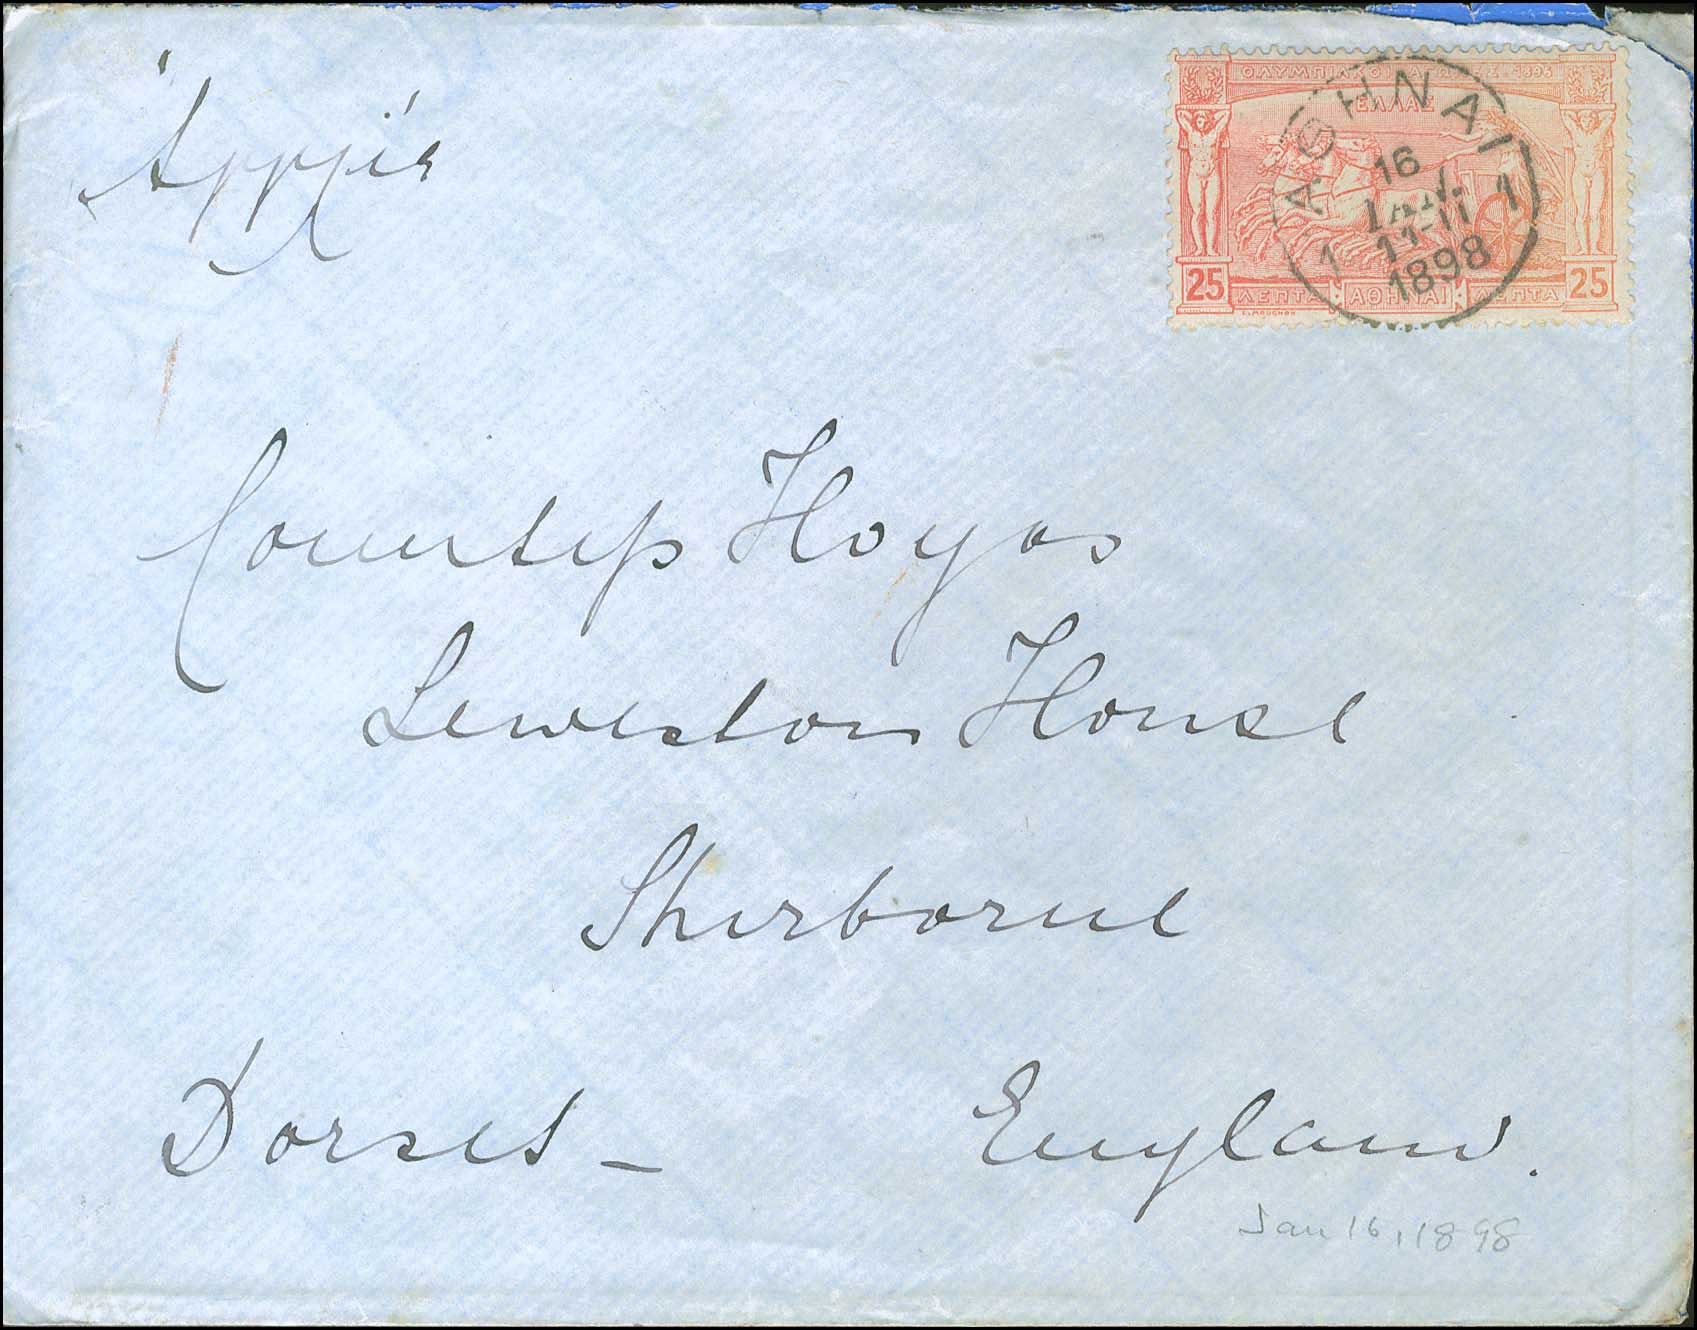 Ἀγγλία
ΟΛΥΜΠΙΑΚΟΙ ΑΓΩΝΕΣ 1896
ΕΛΛΑΣ
ΑΘΗΝΑΙ
16
ΙΑΝ.
11-11
1 1
1898
25 ΛΕΠΤΑ ΑΘΗΝΑΙ ΛΕΠΤΑ 25
L.MOUCHON
Countess Hoyos
Leweston House
Sherborne
Dorset – England.
Jan 16, 1898